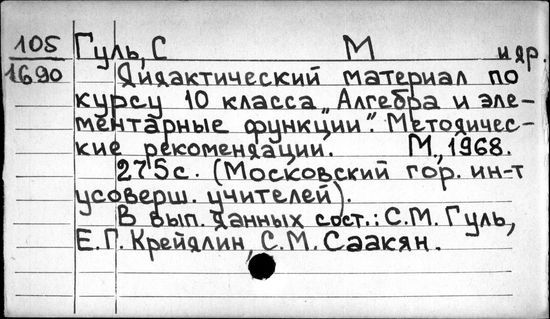 105 Гуль, С М и др.
1690 Дидактический материал по
курсу 10 класса „Алгебра и эле-
ментарные функции". Методичес-
кие рекомендации. М., 1968.
275с. (Московский гор. ин-т
усоверш. учителей).
В вып. данных сост.: С.М. Гуль,
Е.Г. Крейдлин, С.М. Саакян.